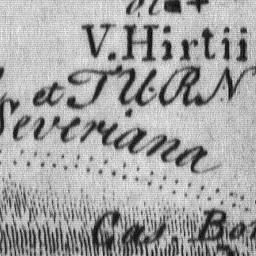 V. Hirtii
et TURN
Severiana
Cas. Bo